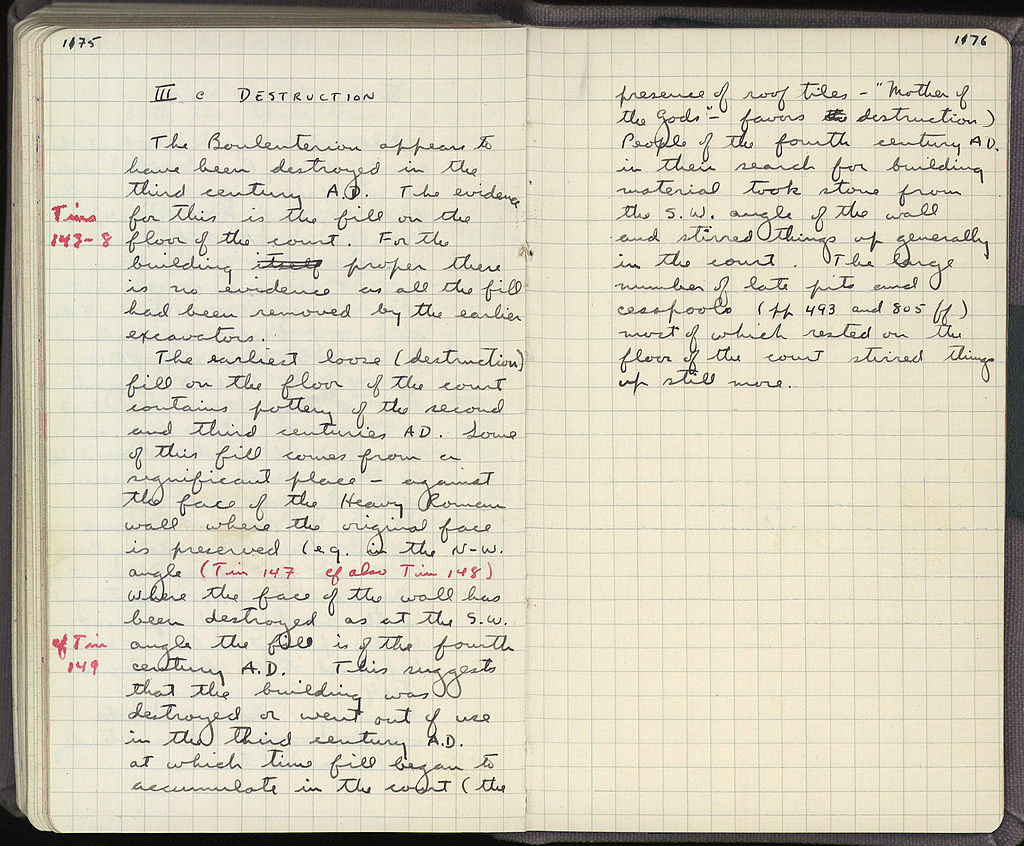 1175
III c DESTRUCTION
The Bouleuterion appears to
have been destroyed in the
third century A.D. The evidence
Tins
143-8
for this is the fill on the
floor of the court. For the
building itself proper there
is no evidence as all the fill
had been removed by the earlier
excavators.
The earliest loose (destruction)
fill on the floor of the court
contains pottery of the second
and third centuries A.D. Some
of this fill comes from a
significant place - against
the face of the Heavy Roman
wall where the original face
is preserved (eg. in the N-W.
angle (Tin 147 cf also Tin 148)
where the face of the wall has
been destroyed as at the S.W.
cf Tin
149
angle the fill is of the fourth
century A.D. This suggests
that the building was
destroyed or went out of use
in the third century A.D.
at which time fill began to
accumulate in the court (the
1176
presence of roof tiles - "Mother of
the Gods" - favors the destruction)
People of the fourth century A.D.
in their search for building
material took stone from
the S.W. angle of the wall
and stirred things up generally
in the court. The large
number of late pits and
cesspools (pp 493 and 805 ff)
most of which rested on the
floor of the court stirred things
up still more.